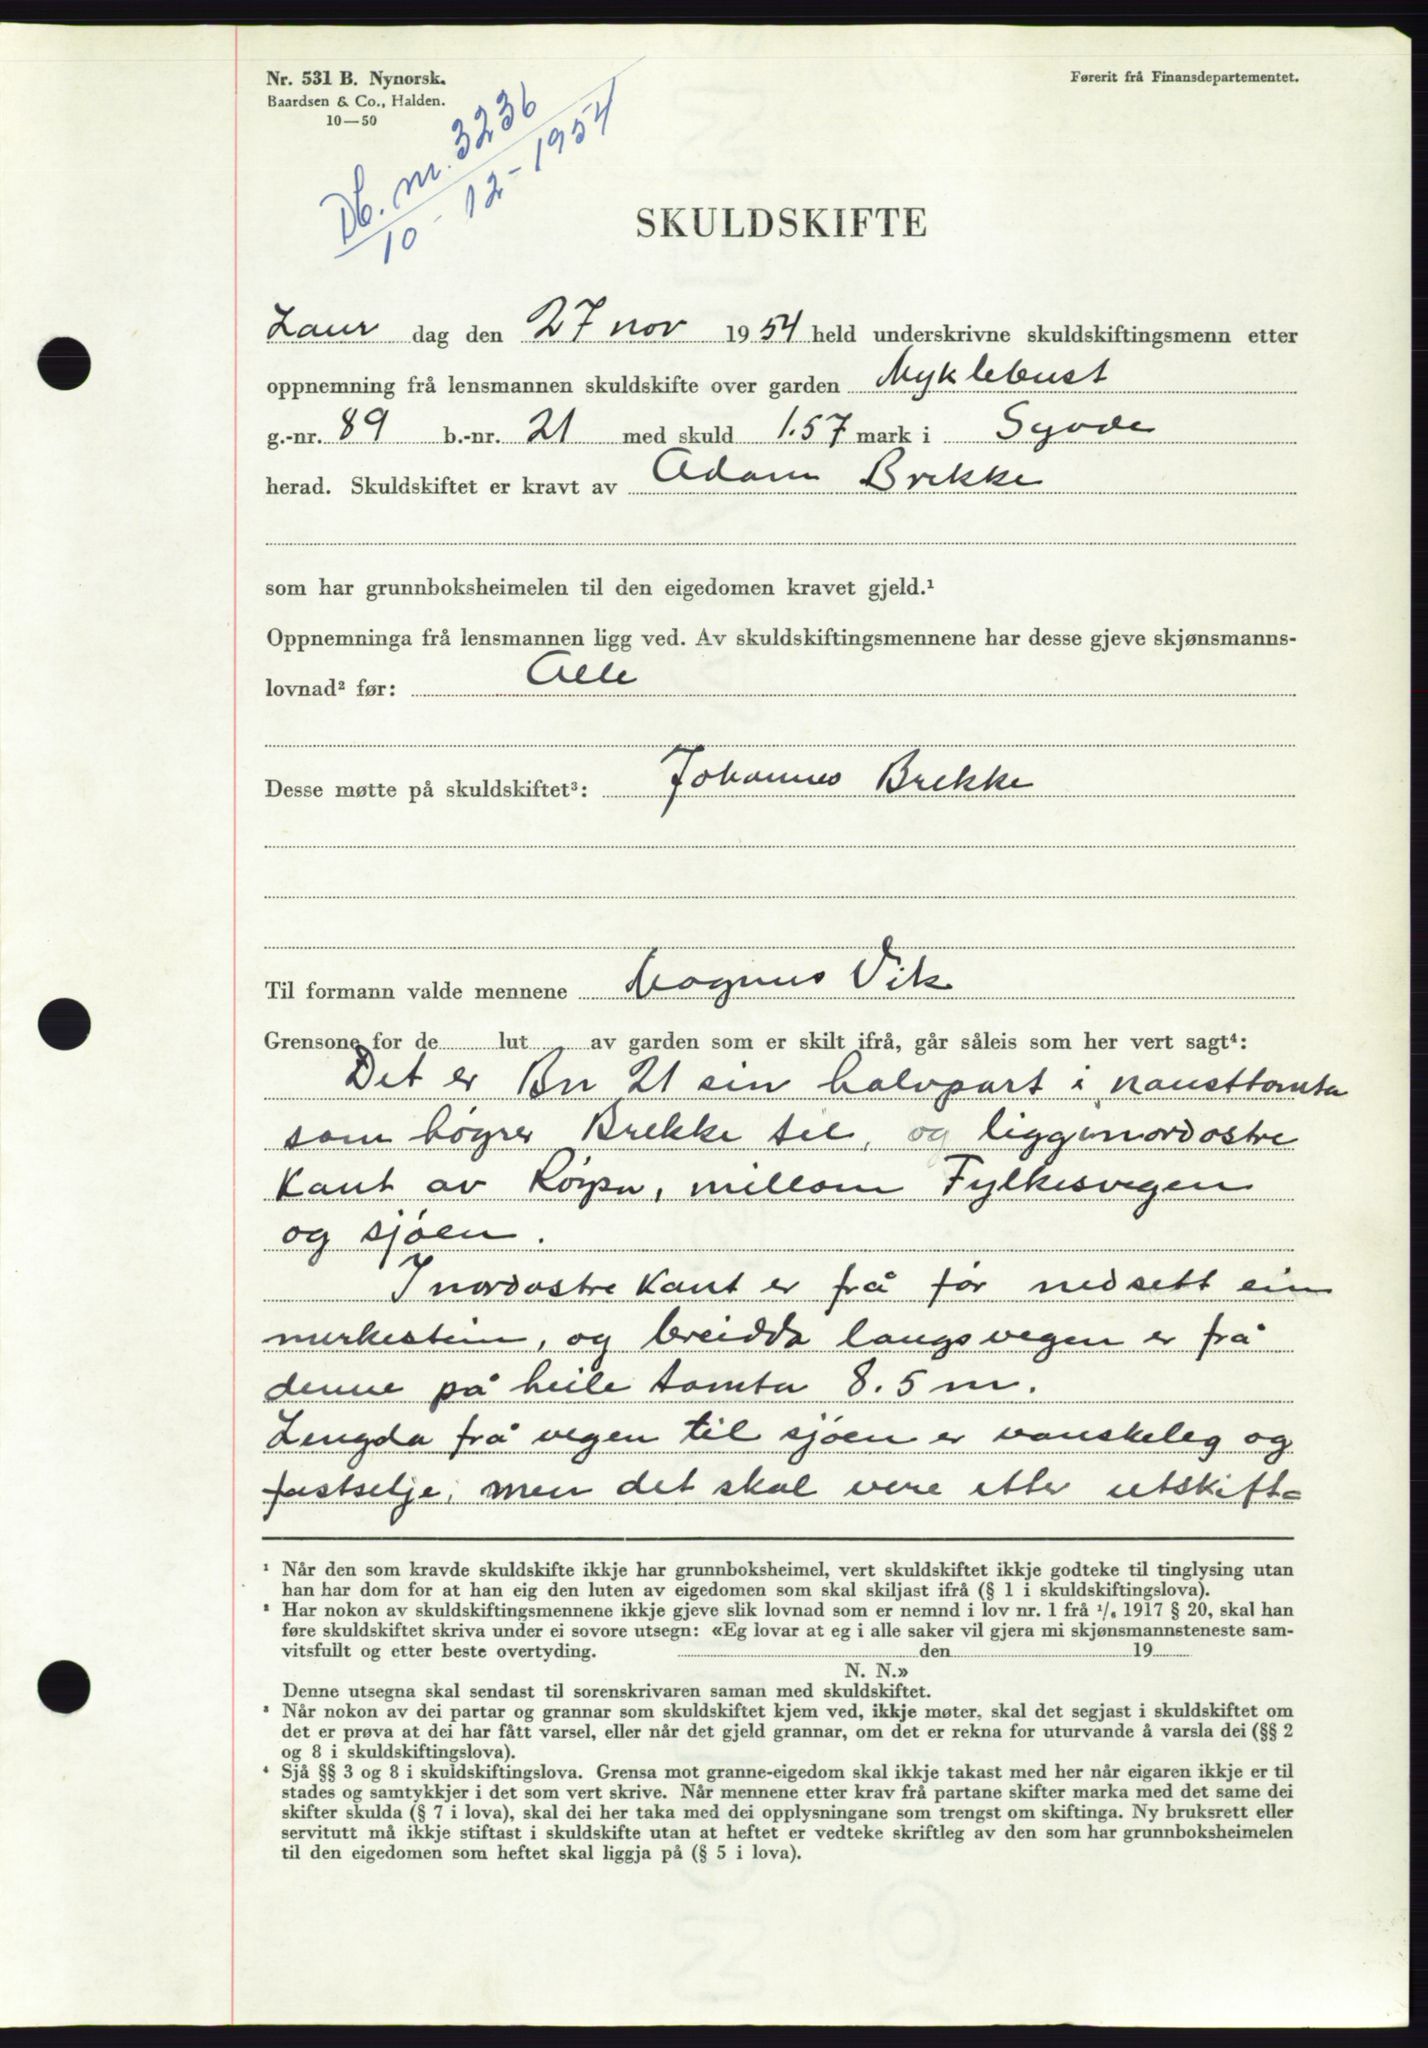 Nr. 531 B. Nynorsk.
Baardsen & Co., Halden.
10—50
Førerit frå Finansdepartementet.
Db. nr. 3236
10-12-1954
SKULDSKIFTE
Laur dag den 27 nov 1954 held underskrivne skuldskiftingsmenn etter
oppnemning frå lensmannen skuldskifte over garden Myklebust
g.-nr. 89 b.-nr. 21 med skuld 1.57 mark i Syvde
herad. Skuldskiftet er kravt av Adam Brekke
som har grunnboksheimelen til den eigedomen kravet gjeld.¹
Oppnemninga frå lensmannen ligg ved. Av skuldskiftingsmennene har desse gjeve skjønsmanns-
lovnad² før: Alle
Desse møtte på skuldskiftet³: Johannes Brekke
Til formann valde mennene Magnus Vik
Grensone for de lut av garden som er skilt ifrå, går såleis som her vert sagt⁴:
Det er Bn 21 sin halvpart i nausttomta
som høyrer Brekke til, og ligg i nordostre
Kant av, millom Fylkesvegen
og sjøen.
I nordostre Kant er frå før nedsett ein
merkestein, og breidda langs vegen er frå
denne på heile tomta 8.5 m.
Lengda frå vegen til sjøen er vanskeleg og
fastselje, men det skal vere etter utskift=
¹ Når den som kravde skuldskifte ikkje har grunnboksheimel, vert skuldskiftet ikkje godteke til tinglysing utan
han har dom for at han eig den luten av eigedomen som skal skiljast ifrå (§ 1 i skuldskiftingslova).
² Har nokon av skuldskiftingsmennene ikkje gjeve slik lovnad som er nemnd i lov nr. 1 frå ¹/₆ 1917 § 20, skal han
føre skuldskiftet skriva under ei sovore utsegn: «Eg lovar at eg i alle saker vil gjera mi skjønsmannsteneste sam-
vitsfullt og etter beste overtyding. den 19
N. N.»
Denne utsegna skal sendast til sorenskrivaren saman med skuldskiftet.
³ Når nokon av dei partar og grannar som skuldskiftet kjem ved, ikkje møter, skal det segjast i skuldskiftet om
det er prøva at dei har fått varsel, eller når det gjeld grannar, om det er rekna for uturvande å varsla dei (§§ 2
og 8 i skuldskiftingslova).
⁴ Sjå §§ 3 og 8 i skuldskiftingslova. Grensa mot granne-eigedom skal ikkje takast med her når eigaren ikkje er til
stades og samtykkjer i det som vert skrive. Når mennene etter krav frå partane skifter marka med det same dei
skifter skulda (§ 7 i lova), skal dei her taka med dei opplysningane som trengst om skiftinga. Ny bruksrett eller
servitutt må ikkje stiftast i skuldskifte utan at heftet er vedteke skriftleg av den som har grunnboksheimelen
til den eigedomen som heftet skal liggja på (§ 5 i lova).